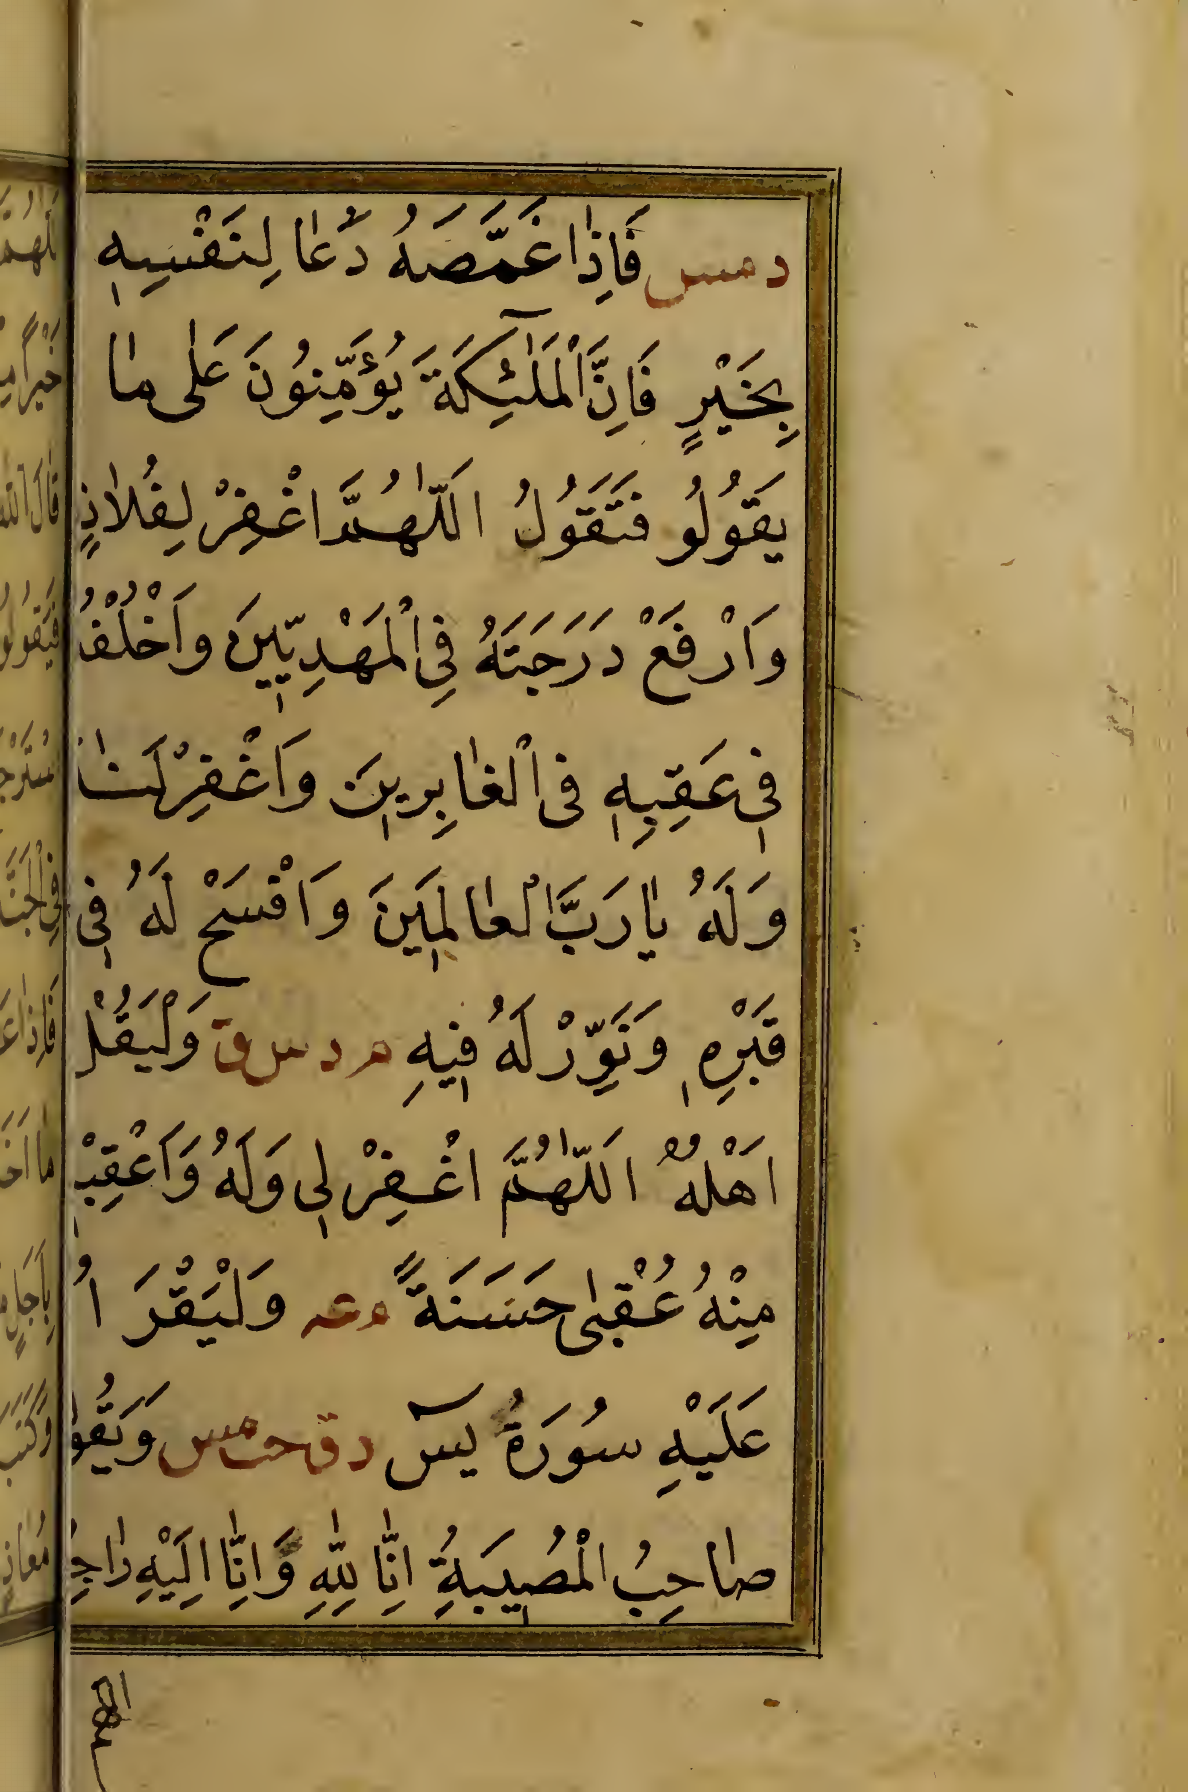 د مس فَاِذٰا غَمَّضَهُ دَعٰا لِنَفْسِهٖ
بِخَيْرٍ فَاِنَّ الْمَلٰٓئِكَةَ يُؤَمِّنُونَ عَلٰى مٰا
يَقُولُو فَتَقُولُ اَللّٰهُمَّ اغْفِرْ لِفُلاٰنٍ
وَارْفَعْ دَرَجَتَهُ فِى الْمَهْدِيّٖينَ وَاخْلُفْهُ
فٖى عَقِبِهٖ فِى الْغٰابِرٖينَ وَاغْفِرْ لَنٰا
وَلَهُ يٰا رَبَّ الْعٰالَمٖينَ وَافْسَحْ لَهُ فٖى
قَبْرِهٖ وَنَوِّرْ لَهُ فٖيهِ م د س ق وَلْيَقُلْ
اَهْلُهُ اَللّٰهُمَّ اغْفِرْ لٖى وَلَهُ وَاَعْقِبْنٖى
مِنْهُ عُقْبٰى حَسَنَةً م عه وَلْيَقْرَ اُ
عَلَيْهِ سُورَةُ يٰسٓ د ق حب مس وَيَقُولُ
صٰاحِبُ الْمُصٖيبَةِ اِنّٰا لِلّٰهِ وَاِنّٰا اِلَيْهِ رٰاجِ
اللهم